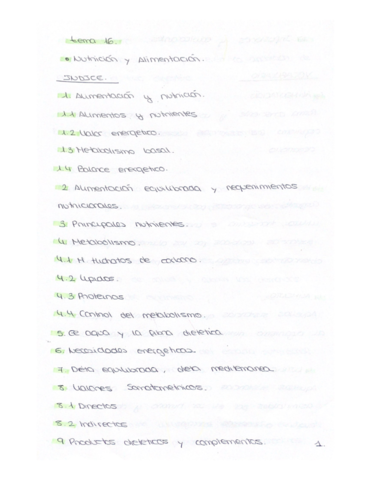 tema 16
• Nutrición y Alimentación.
INDICE.
1. Alimentación y nutrición.
1.1 Alimentos y nutrientes
1.2 Valor energético.
1.3 Metabolismo basal.
1.4 Balance energetico.
2. Alimentación equilibrada y requerimientos
nutricionales.
3. Principales nutrientes.
4. Metabolismo.
4.1 M. Hidratos de carbono
4.2 Lipidos.
4.3 Proteinas
4.4 Control del metabolismo.
5. El agua y la fibra dietetica
6. Necesidades energeticas.
7. Dieta equilibrada, dieta mediterranea.
8. Valores Somatometricos.
8.1 Directos
8.2 Indirectos
9. Productos dieteticos y complementos.
1.